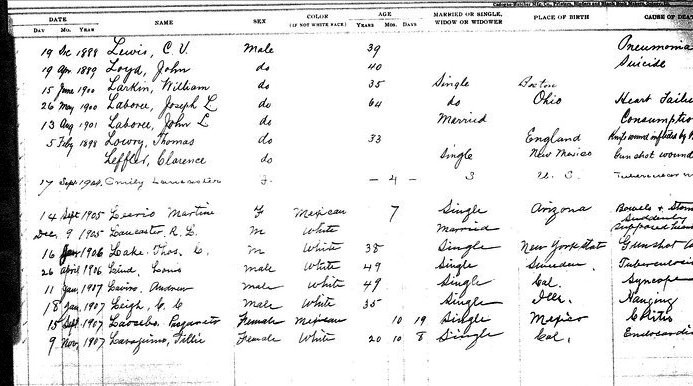 DATE AGE
DAY MO. YEAR NAME SEX COLOR (IF NOT WHITE RACE) YEARS MOS. DAYS MARRIED OR SINGLE, WIDOW OR WIDOWER PLACE OF BIRTH CAUSE OF
19 Dc Lewis, C. V. Male 39 Pneumonia
19 Apr 1889 Loyd, John do 40 Suicide
15 June 1900 Larkin, William do 35 Single Boston
26 May 1900 Laboree, Joseph L do 64 do Ohio Heart
13 Aug 1901 Laboree, John L do Married Consumption
5 Feby 1898 Lowry, Thomas do 33 England Knife wound inflicted by
Leffler, Clarence do Single New Mexico Gun shot wound
17 Sept Emily Lancaster F. - 4 - S U. S.
14 Sept 1905 Martine F Mexican 7 Single Arizona Bowels & Stom
Suddenly
Dec 9 1905 Lancaster, R. L. M White Married supposed
16 Jan 1906 Lake, Thos. M White 38 Single New York Stat Gunshot
26 April 1906 Lind, Male White 49 Single Sweden. Tuberculosis
11 Jan, 1907 Andrew Male White 49 Single Cal. Syncope
18 Jan, 1907 Leigh, C. C Male White 35 Single Ills. Hanging
15 Sept, 1907 Female Mexican 10 19 Single Mexico
9 Nov, 1907 Tillie Female White 20 10 8 Single Cal, Endocardi